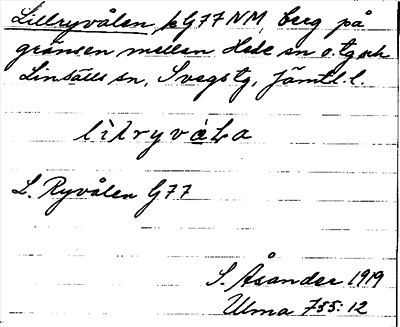 Lillryvålen, på G77 NM, berg på
gränsen mellan Hede sn o. tg och
Linsälls sn, Svegs tg, Jämtl. l.
lìlryvàLa
L. Ryvålen G77
S. Åsander 1919
Ulma 755:12